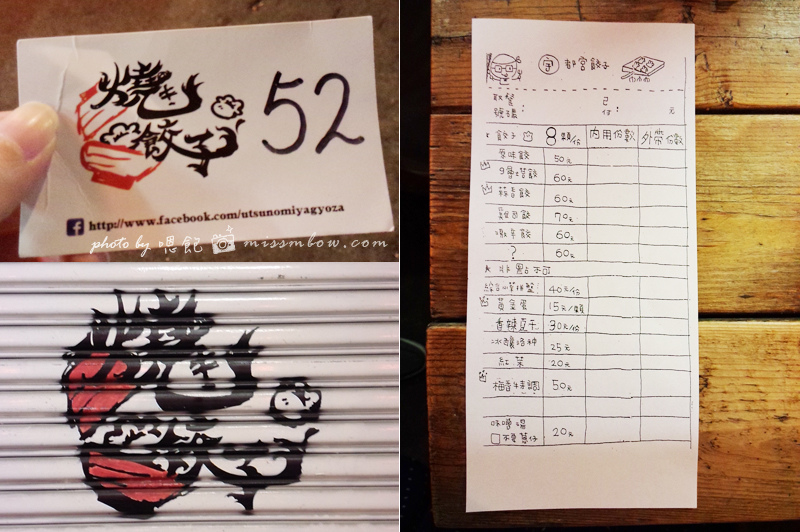 燒き
餃子
52
http://www.facebook.com/utsunomiyagyoza
photo by 嗯飽 missmbow.com
燒き
餃子
宇 都宮餃子
取餐
號碼:
已
付: 元
餃子 8顆/份 內用份數 外帶份數
原味餃 50元
60元
蒜香餃 60元
70元
激辛餃 60元
? 60元
非點不可
綜合小菜拼盤 40元/份
黃金蛋 15元/顆
香辣豆干 30元/份
冰釀洛神 25元
紅茶 20元
梅香特調 50元
味噌湯
□不要蔥仔 20元